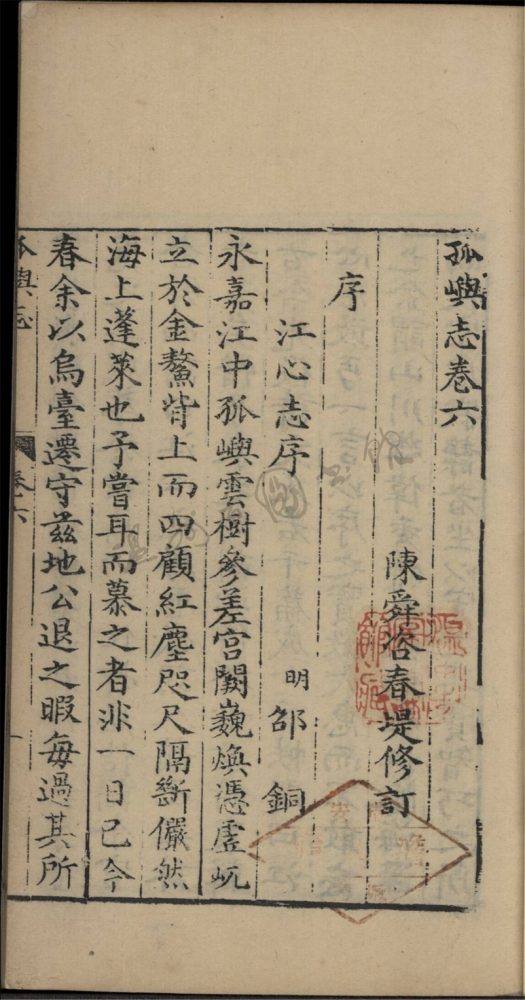 孤嶼志卷六
陳舜咨春堤修訂
序
江心志序 明 邵 銅
永嘉江中孤嶼雲樹參差宫闕巍煥憑虛屼
立於金鰲背上而四顧紅塵咫尺隔斷儼然
海上蓬萊也予嘗耳而慕之者非一日已今
春余以烏臺遷守兹地公退之暇每過其所
孤嶼志 卷六 一